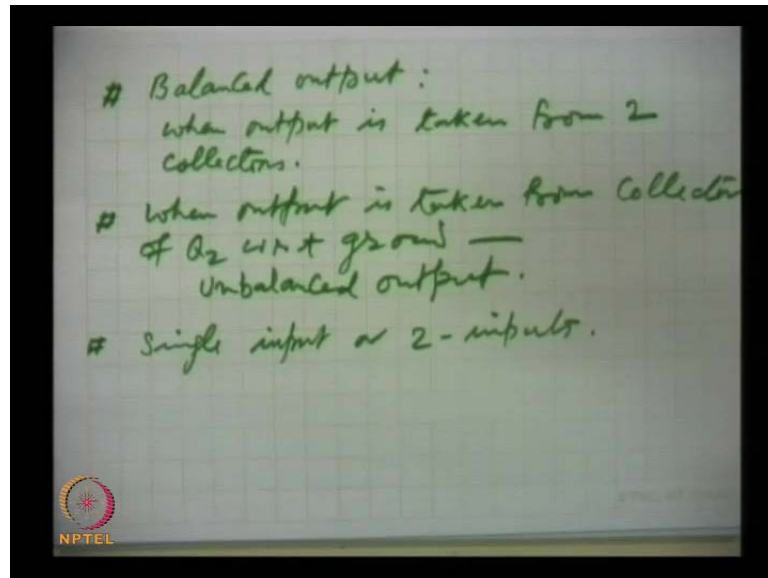 # Balanced output :
when output is taken from 2
collectors.
# when output is taken from Collector
of Q2 w.r.t ground —
unbalanced output.
# Single input or 2-inputs.
NPTEL